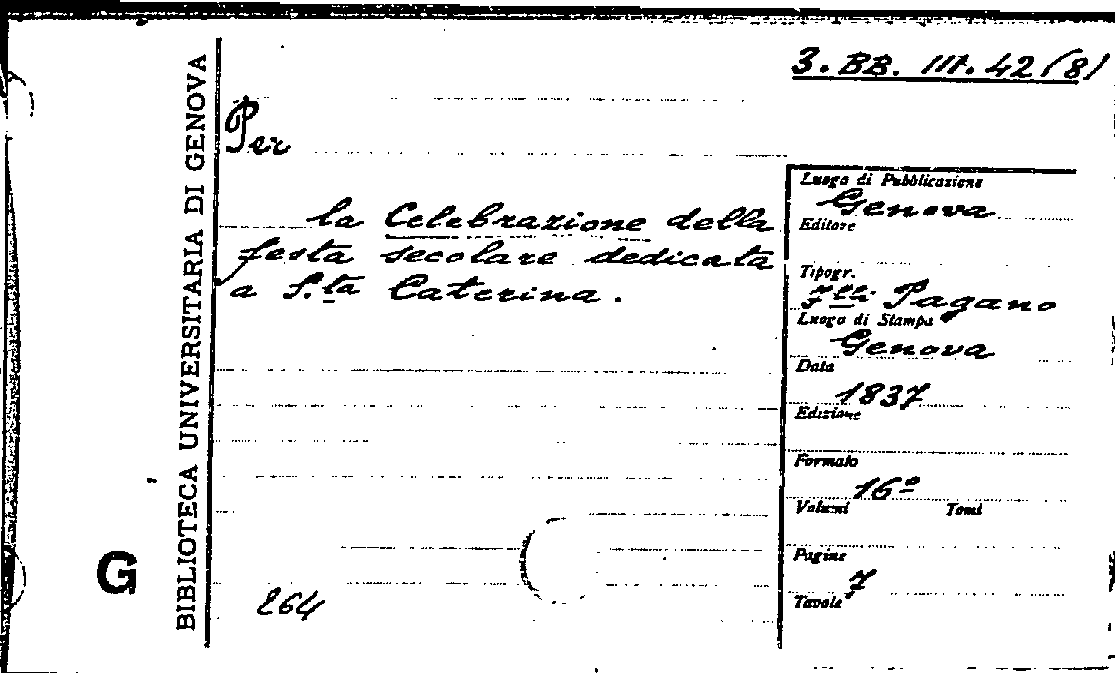 3. BB. III. 42 (8)
BIBLIOTECA UNIVERSITARIA DI GENOVA
G
Per
la Celebrazione della
festa secolare dedicata
a S.ta Caterina.
264
Luogo di Pubblicazione
Genova
Editore
Tipogr.
F.lli Pagano
Luogo di Stampa
Genova
Data
1837
Edizione
Formato
16º
Volumi Tomi
Pagine
7
Tavole